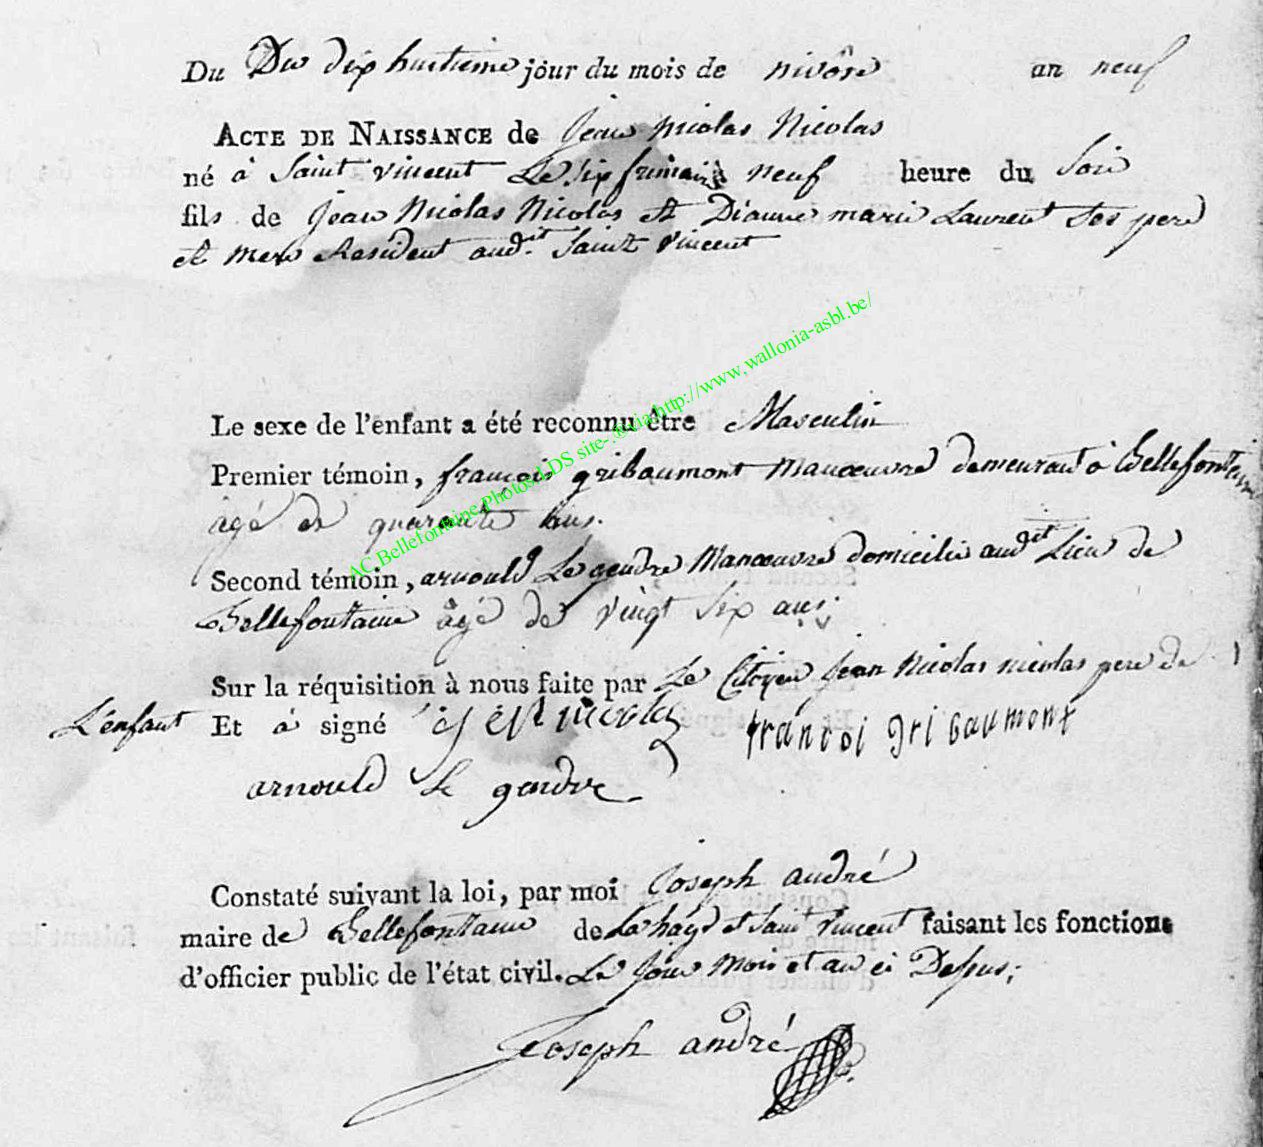 Du Du dix huitieme jour du mois de nivôse an neuf
ACTE DE NAISSANCE de Jean Nicolas Nicolas
né à Saint vincent Le six frimaire neuf heure du Soir
fils de Jean Nicolas Nicolas et Dianne marie Laurent ses pere
et mere Resident aud.it Saint Vincent
Le sexe de l'enfant a été reconnu être Masculin
Premier témoin, françois gribaumont Manœuvre demeurant à Bellefontaine
âgé de quarante ans.
AC.Bellefontaine.Photos LDS site-.®via.http://www.wallonia-asbl.be/
Second témoin, arnould Le gendre Manœuvre domicilié audit Lieu de
Bellefontaine âgé de vingt six ans.
Sur la réquisition à nous faite par Le Citoyen Jean Nicolas nicolas pere de
L'enfant Et á signé nicolas francoi gribaumont
arnould le gendre
Constaté suivant la loi, par moi Joseph andré
maire de Bellefontaine de La hage et Saint Vincent faisant les fonctions
d'officier public de l'état civil. Le Jour Mois et an ci Dessus;
Joseph andré